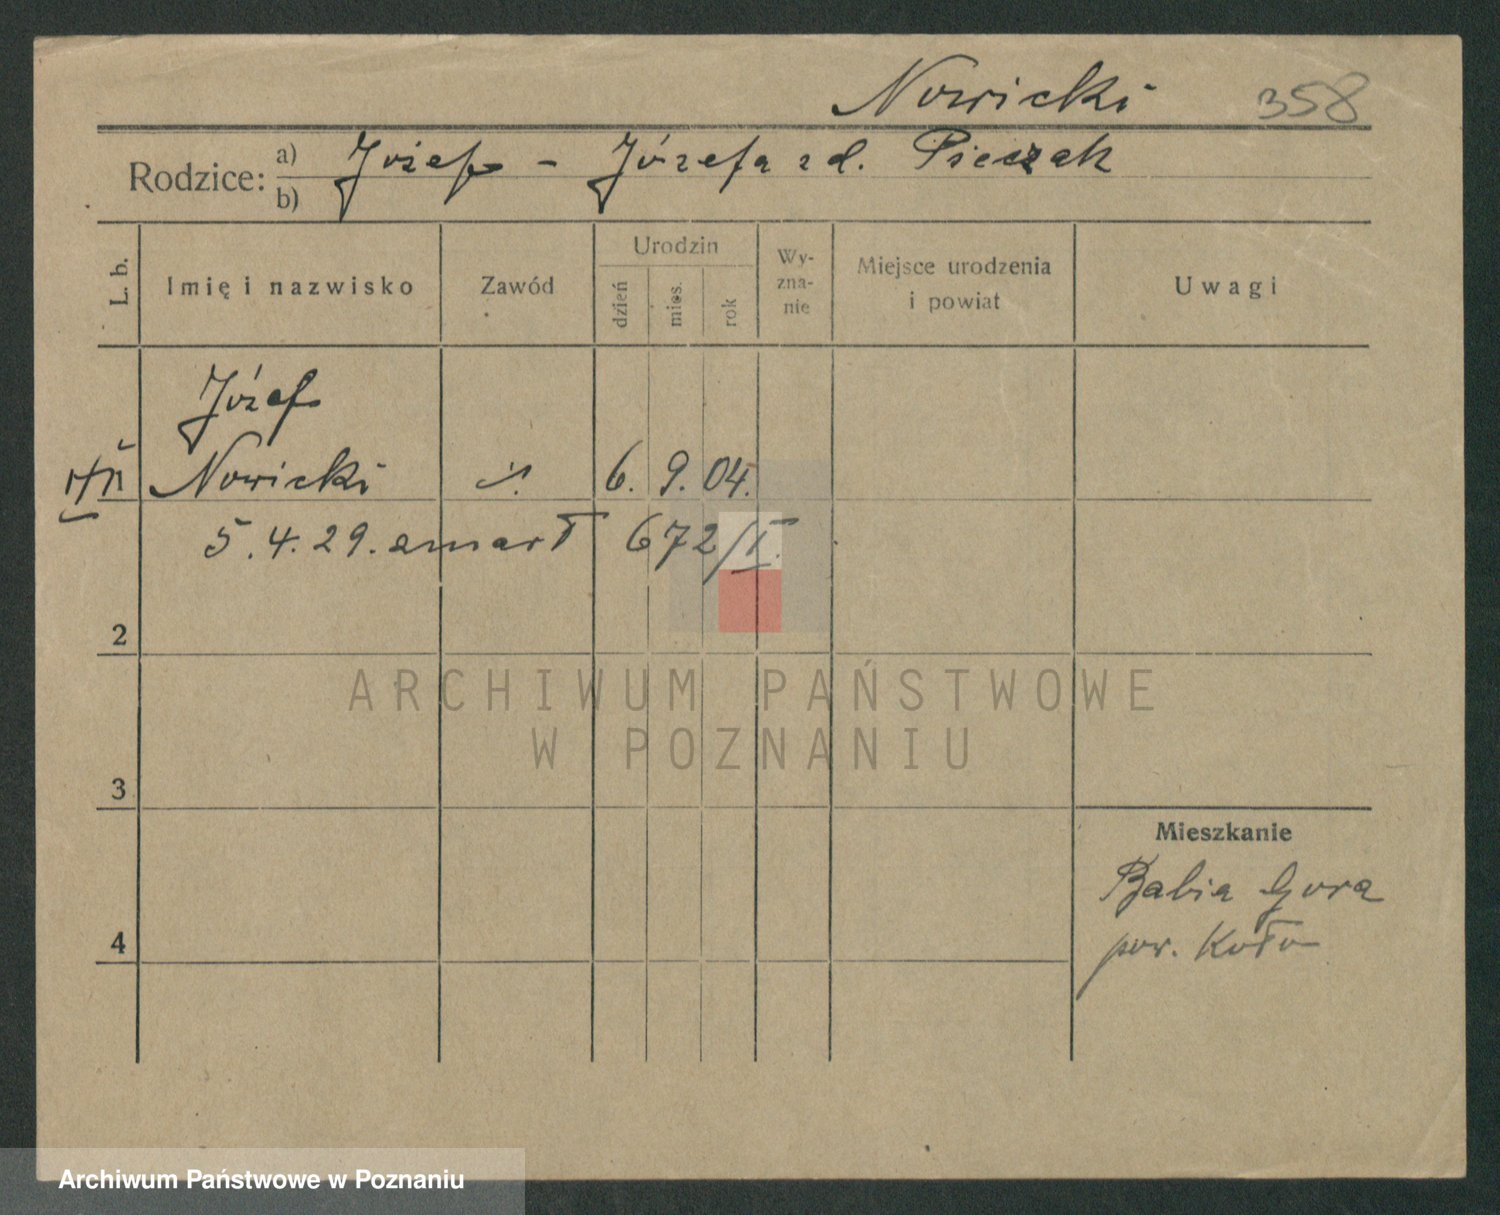 Nowicki 358
Rodzice: a) Józef - Józefa zd. Pieczak
b)
L. b. Imię i nazwisko Zawód Urodzin dzień mies. rok Wyznanie Miejsce urodzenia i powiat Uwagi
Józef
Nowicki 6. 9. 04.
5.4.29. zmarł 672/I.
2
ARCHIWUM PAŃSTWOWE
W POZNANIU
3
Mieszkanie
Babia Gora
4
pow. Koło
Archiwum Państwowe w Poznaniu